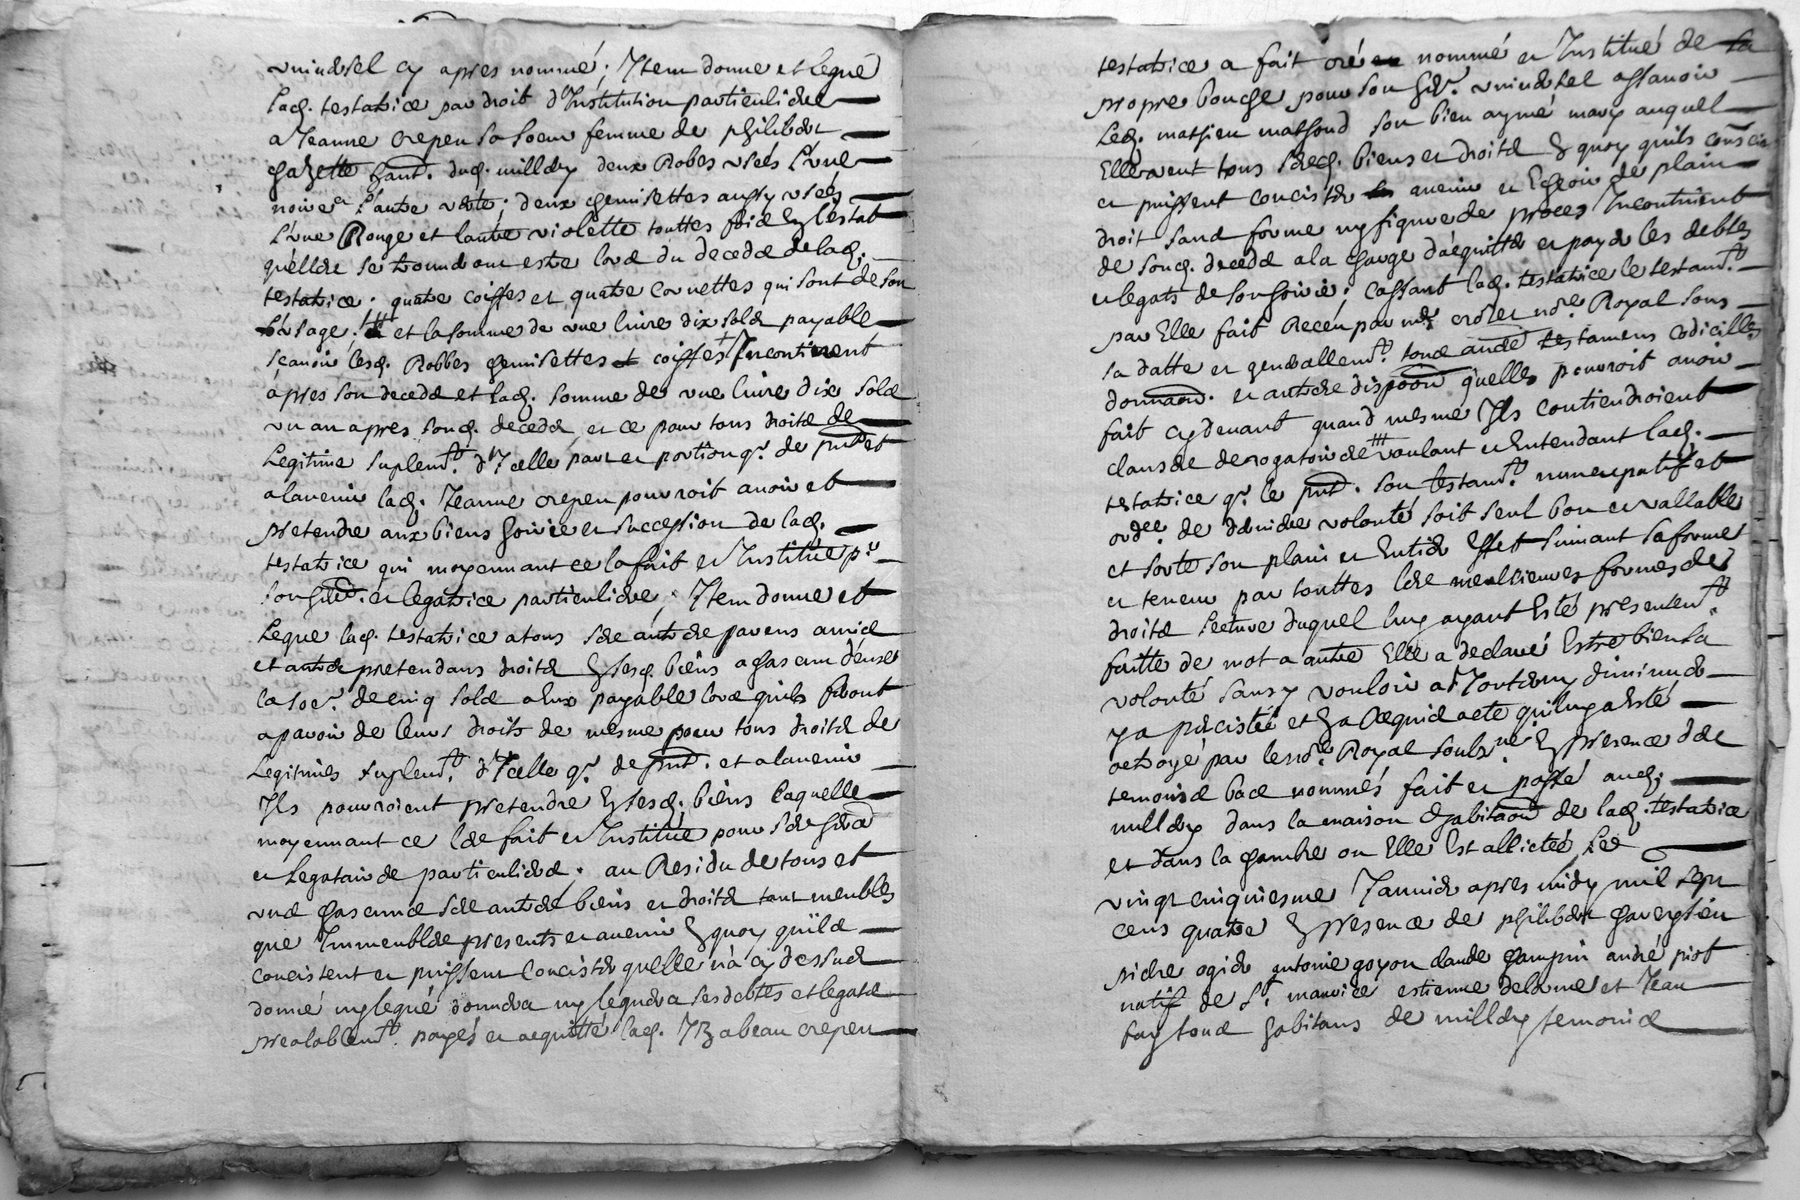 universel cy apres nommé; Item donne et legue
lad. testatrice par droit d'Institution particuliere
a Jeanne crepeu sa soeur femme de philibert
chazette hant. dud. millery deux Robes usées l'une
noire et l'autre verte; deux chemisettes aussy usées
l'une Rouge et lautre violette touttes fois en l'estat
quelles se trouveront estre lors du deceds de lad.
testatrice; quatre coiffes et quatre cornettes qui sont de son
usage; et la somme de une livre dix sols payable
sçavoir lesd. Robbes chemisettes et coiffes Incontinent
apres son deceds et lad. somme de une livre dix sols
un an apres soud. deceds, et ce pour tous droits de
Legitime suplemt. d'Icelle part et portion q. de pnt et
alavenir lad. Jeanne crepeu pourroit avoir et
pretendre aux biens hoirie et succession de lad.
testatrice qui moyennant ce la fait et Instituée pr
son her. et legatrice particuliere; Item donne et
Legue lad. testatrice a tous ses autres parens amis
et autres pretendans droits en sesd. biens a chascun d'eux
la soe. de cinq sols a Eux payable lors quils feront
aparoir de leurs droits de mesme pour tous droits de
Legitimes suplemt. d'Icelle q. de pnt. et alavenir
Ils pourroient pretendre en sesd. biens laquelle
moyennant ce les fait et Institue pour ses hers
et legataires particuliers; au Residu de tous et
uns chascuns ses autres biens et droits tant meubles
que Immeubles presents et avenir en quoy quils
concistent et puissent concister quelle n'a cy dessus
donné ny legué donnera ny leguera ses debtes et legats
prealablemt. payés et acquitté lad. Izabeau crepeu
testatrice a fait créé nommé et Institué de sa
propre bouche pour son her. universel assavoir
led. mathieu mathoud son bien aymé mary auquel
Elle veut tous sesd. biens et droits en quoy quils concistent
et puissent concister avenir et Echoir de plain
droit sans forme ny figure de proces Incontinent
de soud. deceds a la charge d'acquitter et payer les debtes
et legats de son hoirie; cassant lad. testatrice le testamt.
par Elle fait Receu par me crozet nore. Royal sous
sa datte et generallemt. tous autres testamens codicilles
donnaons. et autres dispoons quelle pourroit avoir
fait cydevant quand mesme Ils contiendroient
clauses derogatoires voulant et Entendant lad.
testatrice q. le pnt. son testamt. nuncupatif et
ordce. de derniere volonté soit seul bon et vallable
et sorte son plain et Entier Effet suivant sa forme
et teneur par touttes les meillieures formes de
droits lecture duquel luy ayant Esté presentemt.
faitte de mot a autre Elle a declaré Estre bien sa
volonté sans y vouloir adJouter ny diminuer
y a percistée et en a Requis acte qui luy a Esté
octroyé par le nore. Royal soubzné En presence des
temoins bas nommés fait et passé aud.
millery dans la maison d'habitaon de lad. testatrice
et dans la chambre ou Elle Est allictée Le
vingt cinquiesme Janvier apres midy mil sept
cens quatre En presence de philibert
pierre ogier antoine goyon claude champin andré piot
natif de St. maurice estienne delorme et Jean
fay tous habitans de millery temoins